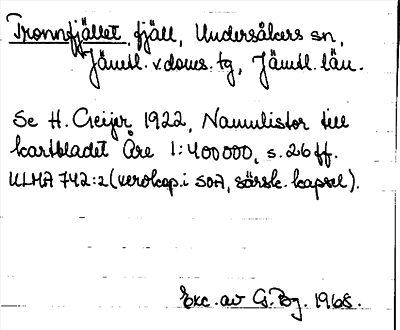 Tronnfjället, fjäll, Undersåkers sn,
Jämtl. v. doms. tg, Jämtl. län.
Se H. Geijer 1922, Namnlistor till
kartbladet Åre 1:400000, s. 26 ff.
ULMA 742:2 (xerokop. i SOA, särsk. kapsel).
Exc. av G. Bg. 1968.